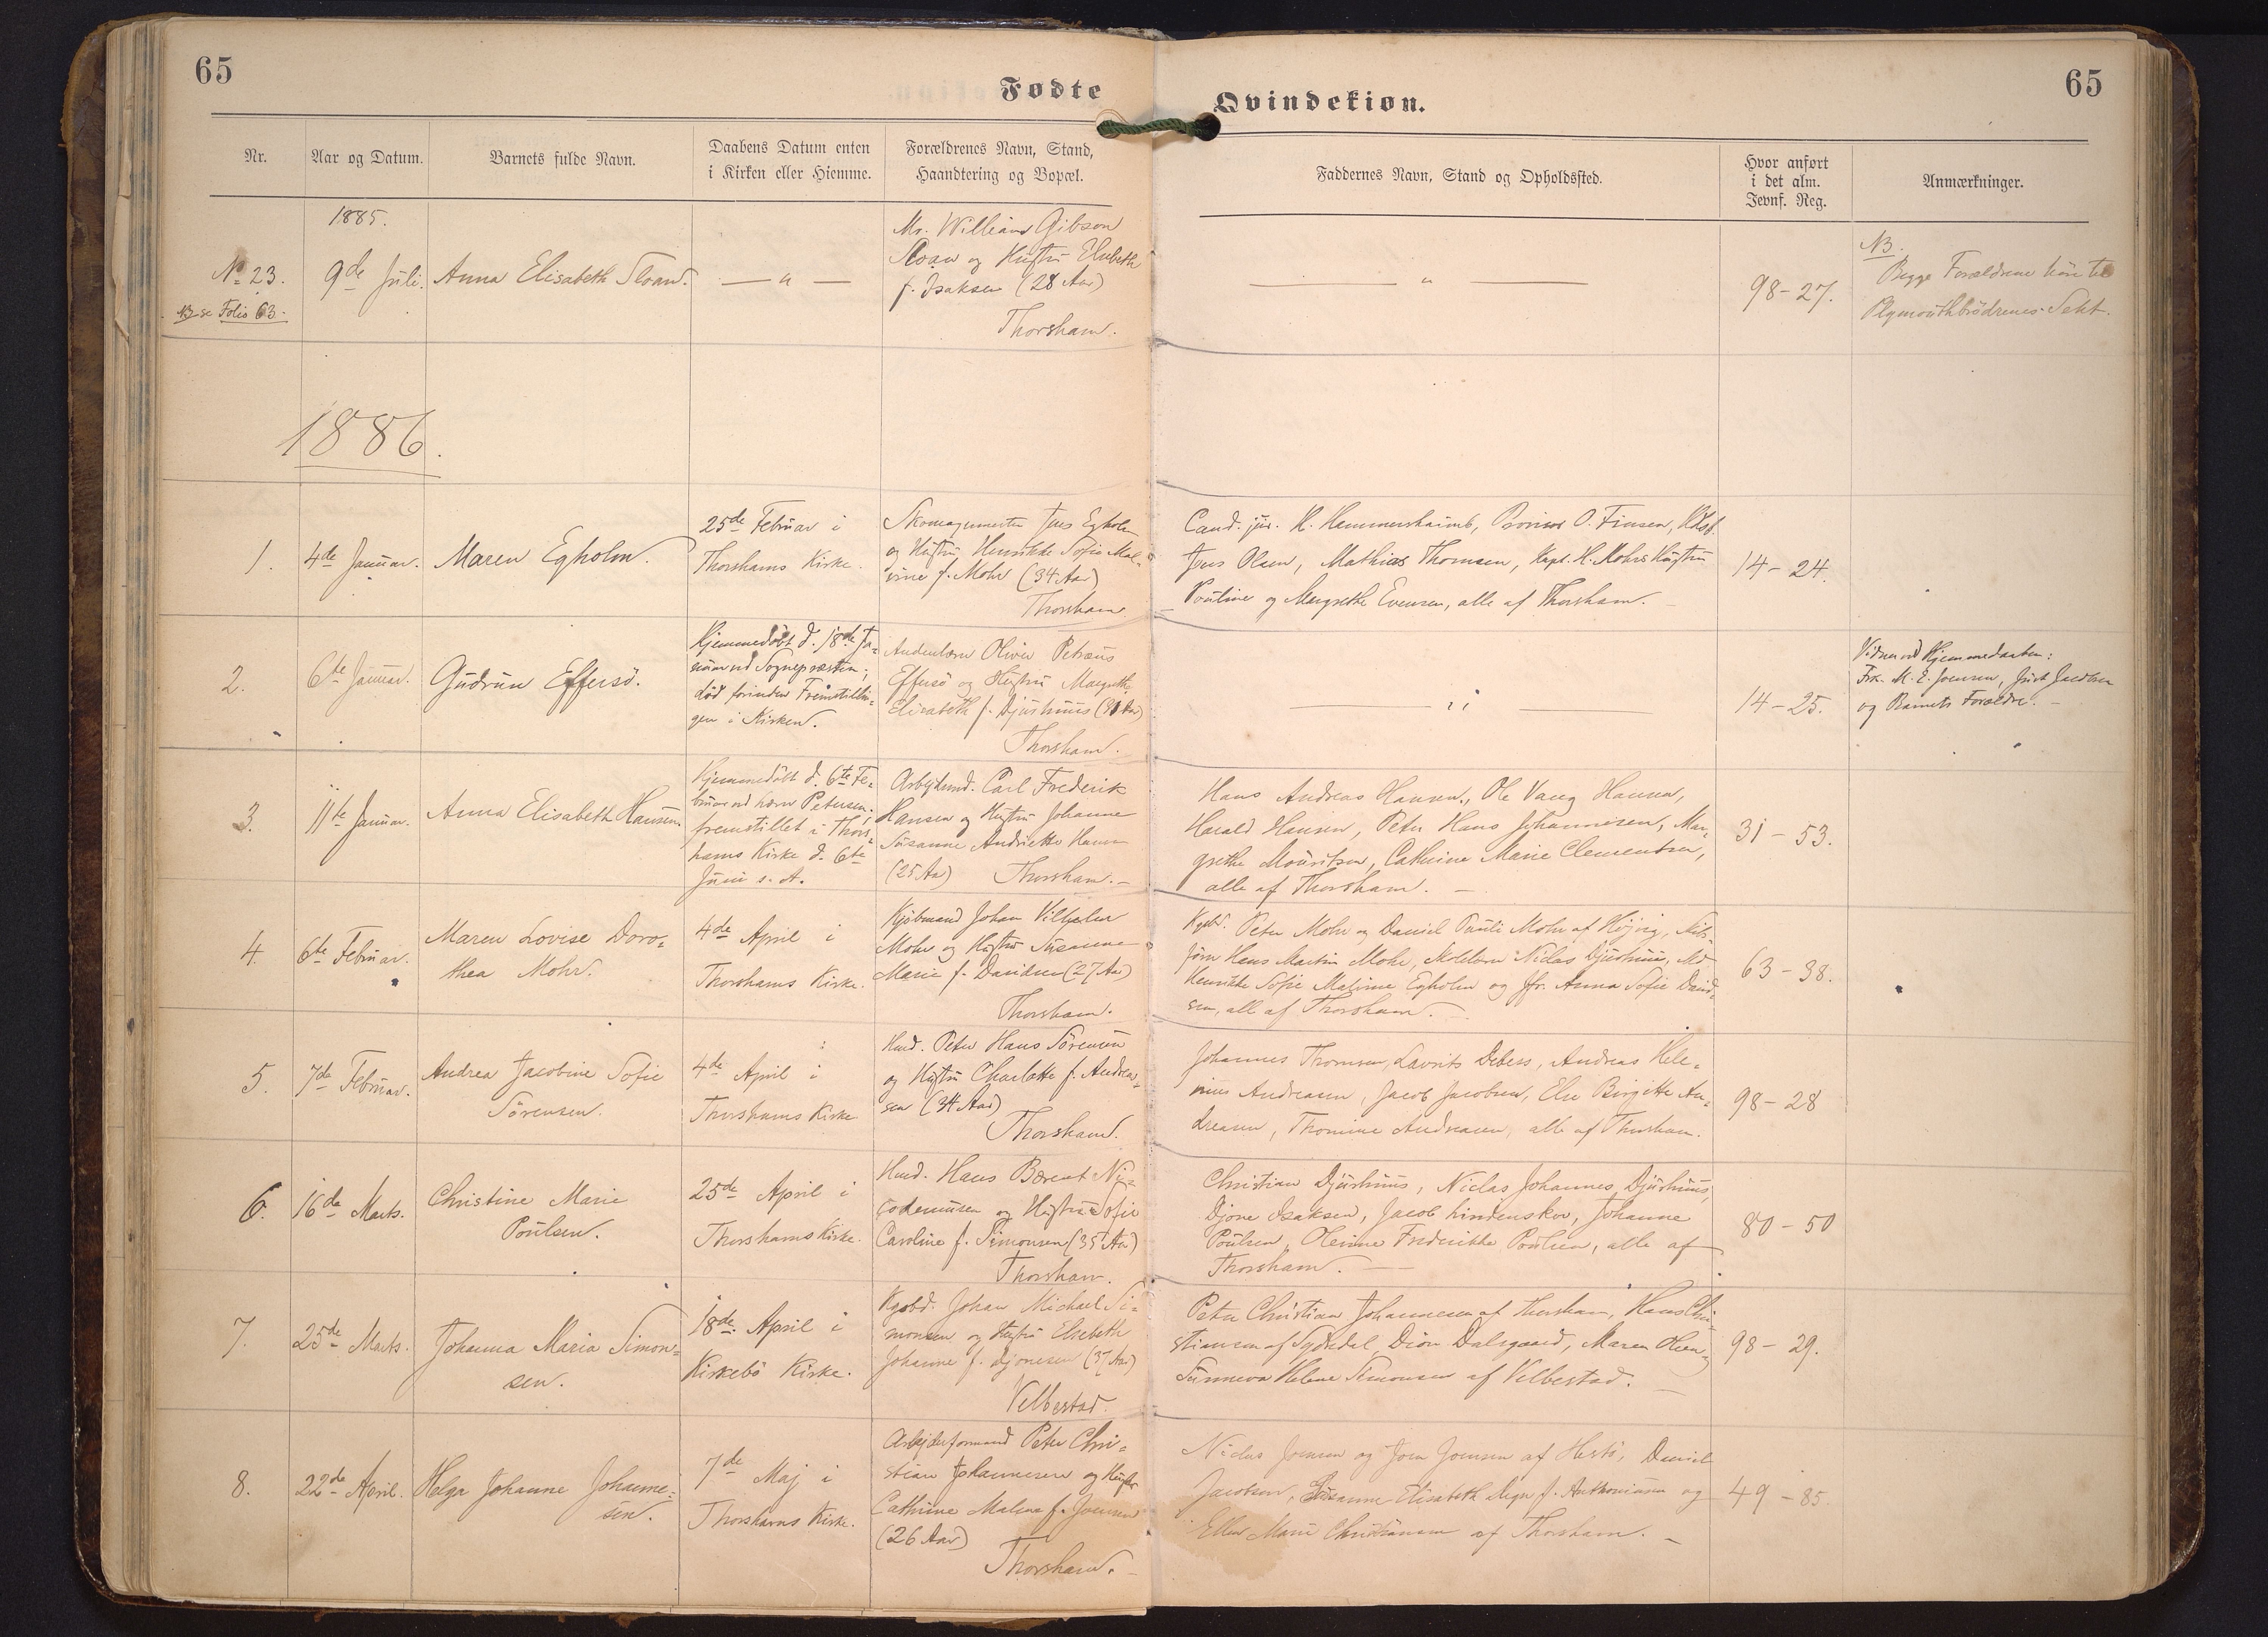 65
65
Fødte
Qvindekiøn.
Nr.
Aar og Datum.
Barnets fulde Navn.
Daabens Datum enten
i Kirken eller Hiemme.
Forældrenes Navn, Stand,
Haandtering og Bopæl.
Faddernes Navn, Stand og Opholdssted.
Hvor anført
i det alm.
Jevnf. Reg.
Anmærkninger.
1885.
No 23.
NB se Folio 63.
9de Juli.
Anna Elisabeth Sloan.
— " —
Mr. William Gibson
Sloan og Hustru Elsebeth
f. Isaksen (28 Aar)
Thorshavn.
— " —
98-27.
NB.
Begge Forældrene høre til
Plymouthbrødrenes Sekt.
1886.
1.
4de Januar.
Maren Egholm.
25de Februar i
Thorshavns Kirke.
Skomagermester Jens Egholm
og Hustru Henrikke Sofie Mal-
vine f. Mohr (34 Aar)
Thorshavn.
Cand. jur. H. Hammershaimb, O. Finsen,
Jens Olsen, Mathias Thomsen, Kapt. H. Mohrs Hustru
Pouline og Margrethe Evensen, alle af Thorshavn.
14-24.
2.
6te Januar.
Gudrun Effersö.
Hjemmedöbt d. 18de Ja-
nuar ved Sognepræsten;
död forinden Fremstillin-
gen i Kirken.
Oliver Petræus
Effersö og Hustru Margrethe
Elisabeth f. Djurhuus (31 Aar)
Thorshavn.
14-25.
Vidner ved Hjemmedaaben:
Frk. M. E. Joensen, Jacobsen
og Barnets Forældre.
3.
11te Januar.
Anna Elisabeth Hansen.
Hjemmedöbt d. 6te Fe-
bruar ved Lærer Petersen,
fremstillet i Thors-
havns Kirke d. 6te
Juni s. A.
Arbejdsmd. Carl Frederik
Hansen og Hustru Johanne
Susanne Andriette Hansen
(25 Aar) Thorshavn.
Hans Andreas Hansen, Ole Vang Hansen,
Harald Hansen, Peter Hans Johannesen, Mar-
grethe Mouritsen, Cathrine Marie Clementsen,
alle af Thorshavn.
31-53.
4.
6te Februar.
Maren Lovise Doro-
thea Mohr.
4de April i
Thorshavns Kirke.
Kjöbmand Johan Vilhelm
Mohr og Hustru Susanne
Marie f. Davidsen (27 Aar)
Thorshavn.
Kgsbd. Peter Mohr og Daniel Pauli Mohr af Höjvig,
Hans Martin Mohr, Niclas Djurhuus,
Henrikke Sofie Malvine Egholm og Jfr. Anna Sofie David-
sen, alle af Thorshavn.
63-38.
5.
7de Februar.
Andrea Jacobine Sofie
Sörensen.
4de April i
Thorshavns Kirke
Hmd. Peter Hans Sörensen
og Hustru Charlotte f. Andrea-
sen (34 Aar)
Thorshavn.
Johannes Thomsen, Lavrits Debess, Andreas Hele-
nius Andreasen, Jacob Jacobsen, Else Birgitte An-
dreasen, Thomine Andreasen, alle af Thorshavn.
98-28
6.
16de Marts.
Christine Marie
Poulsen.
25de April i
Thorshavns Kirke.
Hmd. Hans Berent Ni-
codemussen og Hustru Sofie
Caroline f. Simonsen (35 Aar)
Thorshavn.
Christian Djurhuus, Niclas Johannes Djurhuus,
Djone Isaksen, Jacob Lindenskov, Johanne
Poulsen, Frederikke Poulsen, alle af
Thorshavn.
80-50
7.
25de Marts.
Johanna Maria Simon-
sen.
18de April i
Kirkebö Kirke.
Kgsbd. Johan Michael Si-
monsen og Hustru Elsebeth
Johanne f. Djonesen (37 Aar)
Velbestad.
Peter Christian Johannesen af Thorshavn, Hans Chri-
stiansen af Sydredal, Dalsgaard, Maren
Sunneva Helene Simonsen af Velbestad.
98-29.
8.
22de April.
Helga Johanne Johanne-
sen.
7de Maj i
Thorshavns Kirke.
Arbejdsformand Peter Chri-
stian Johannesen og Hustru
Cathrine Malene f. Joensen
(26 Aar)
Thorshavn.
Niclas Joensen og Joen Joensen af Hestö, Daniel
Jacobsen, Susanne Elisabeth f. Anthoniussen og
Ellen Marie Christiansen af Thorshavn.
49-85.